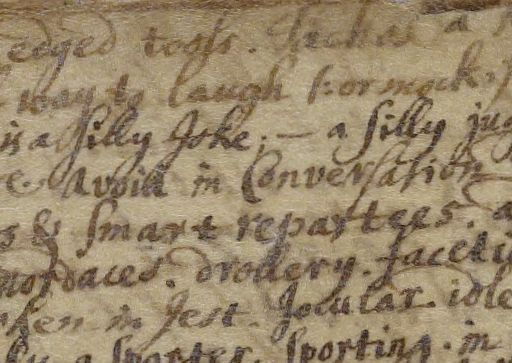 edged tools. Such as a
way to laugh or mock.
is a silly Joke; — a silly jug
re. Avoid in Conversation
s & smart repartees. a
mordaces. drollery. faceti
ken in Jest. Jocular. idle
a sporter. sporting. in